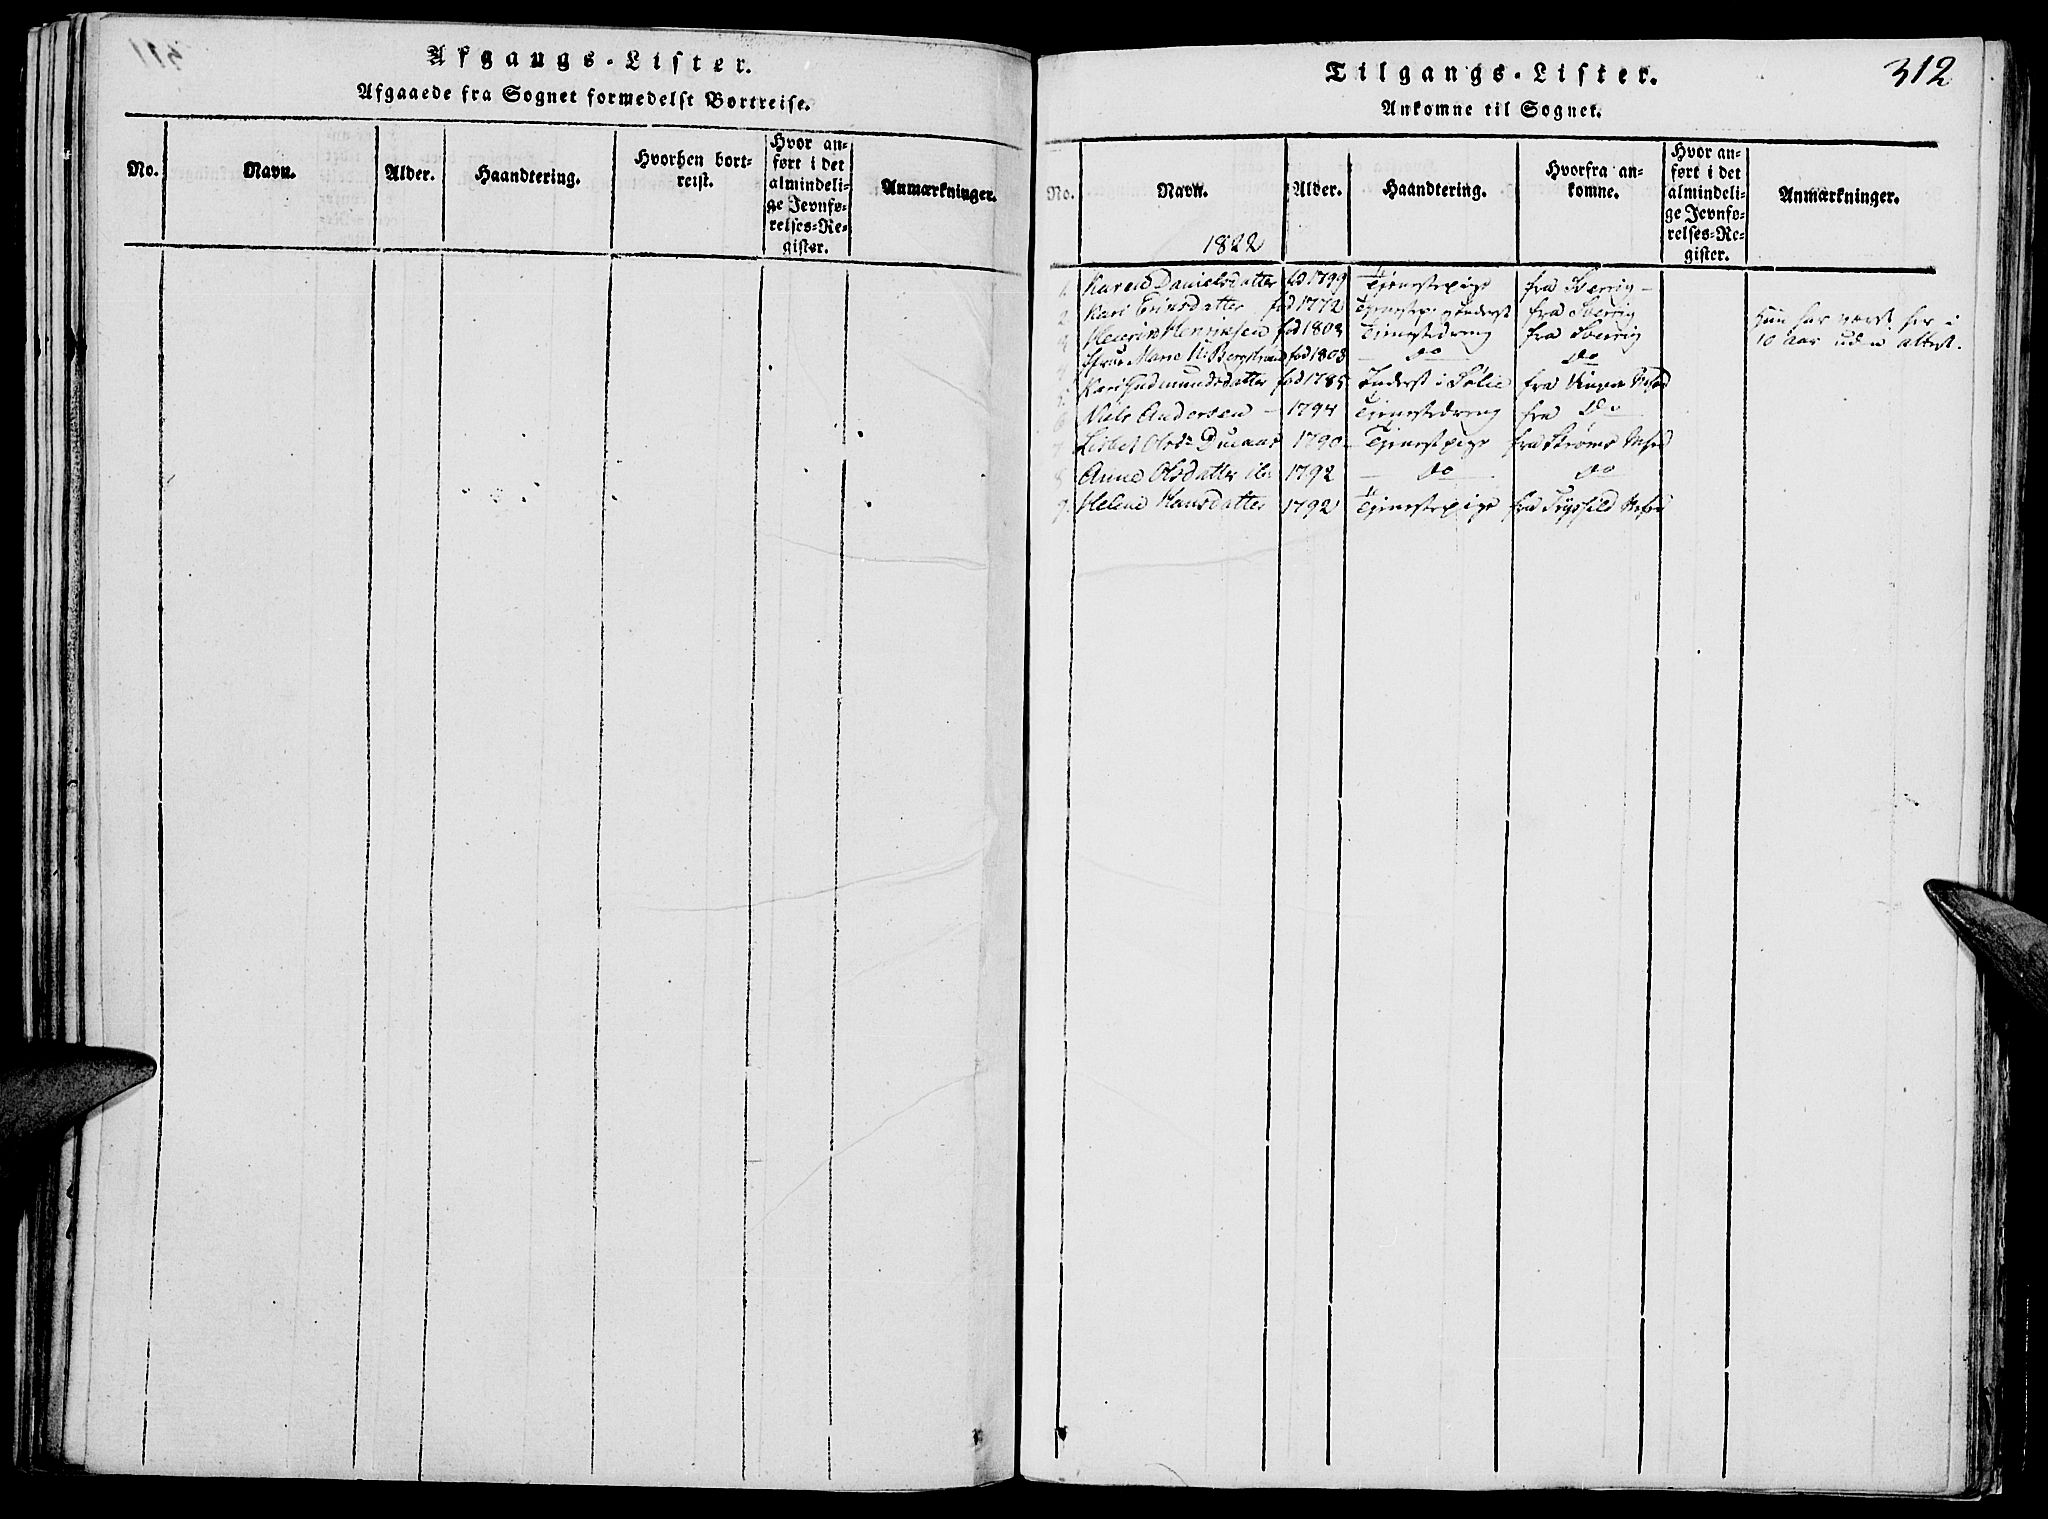 Afgangs-Lister.
Afgaaede fra Sognet formedelst Bortreise.
No.
Navn.
Alder.
Haandtering.
Hvorhen bort-
reist.
Hvor an-
ført i det
almindeli-
ge Jevnfø-
relses-Re-
gister.
Anmærkninger.
312
Tilgangs-Lister.
Ankomne til Sognet.
No.
Navn.
Alder.
Haandtering.
Hvorfra an-
komne.
Hvor an-
ført i det
almindeli-
ge Jevnfø-
relses-Re-
gister.
Anmærkninger.
1822
1. Karen Danielsdatter fød 1799 Tjenestepige fra Sverrig
2. Kari Eriksdatter fød 1772 fra Sverrig
Henrik fød 1803 Tjenestedreng fra Sverrig
Marie fød 1803 do do
Kari Gudmundsdatter fød 1785 Inderst i fra
6 Niels Andersen 1794 Tjenestedreng fra do
7 Lisbet 1790 Tjenestpige fra
8 Anne Olsdatter 1792 do do
9. Helene Hansdatter 1792 Tjenestepige fra
Hun har været her i
10 Aar uden Attest.